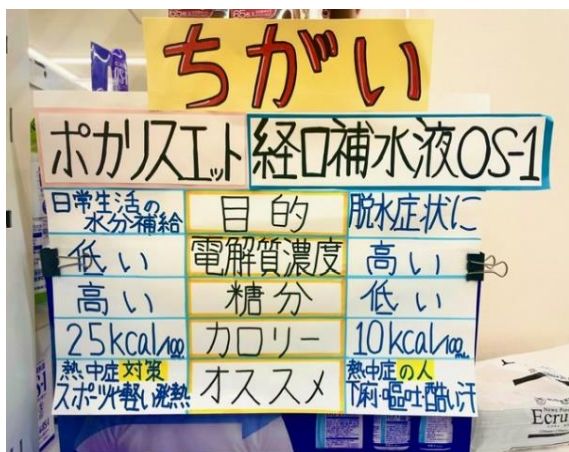 ちがい
ポカリスエット 経口補水液OS-1
日常生活の
水分補給 目的 脱水症状に
低い 電解質濃度 高い
高い 糖分 低い
25kcal/100mL カロリー 10kcal/100mL
熱中症対策
スポーツや軽い発熱 オススメ 熱中症の人
下痢・嘔吐・酷い汗
Ecru